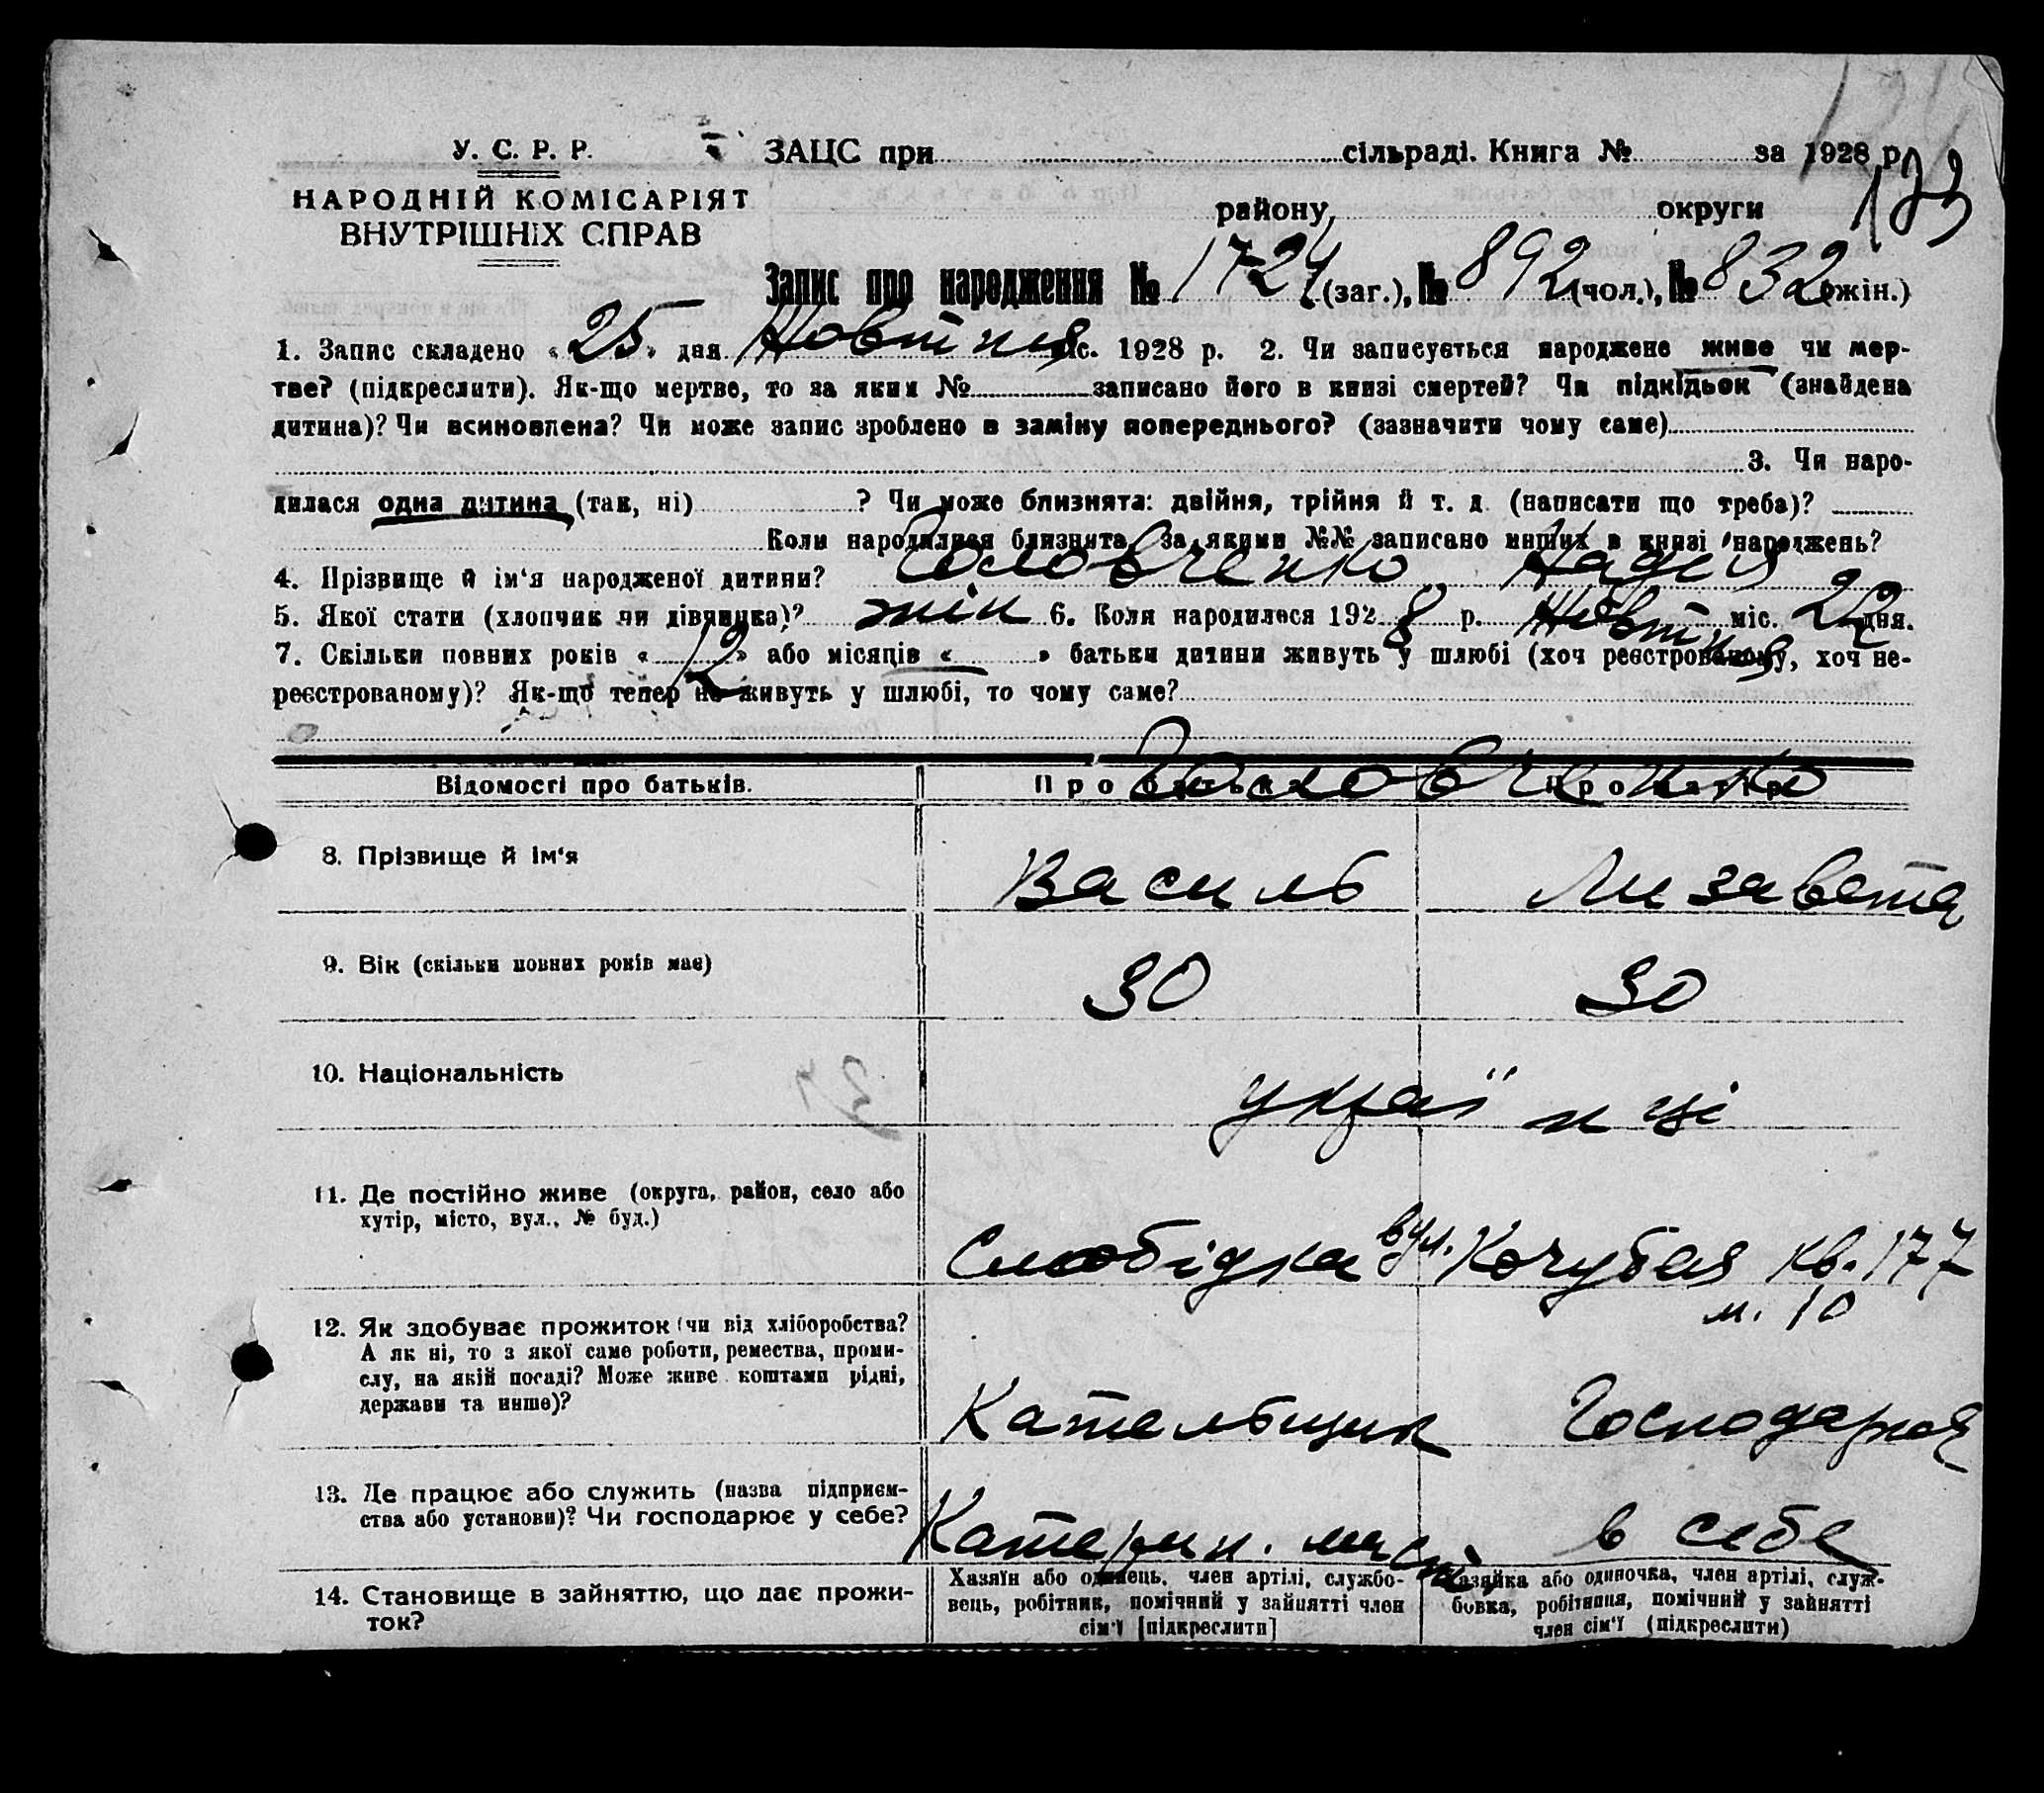 У. С. Р. Р. ЗАЦС при сільраді. Книга № за 1928 р.
133
НАРОДНІЙ КОМІСАРІЯТ
ВНУТРІШНІХ СПРАВ
району, округи
Запис про народження № 1724 (заг.), № 892 (чол.), № 832 (жін.)
1. Запис складено « 25 » дня Жовтня міс. 1928 р. 2. Чи записується народжене живе чи мер-
тве? (підкреслити). Як-що мертве, то за яким № записано його в книзі смертей? Чи підкідьок (знайдена
дитина)? Чи всиновлена? Чи може запис зроблено в заміну попереднього? (зазначити чому саме)
3. Чи наро-
дилася одна дитина (так, ні) ? Чи може близнята: двійня, трійня й т. д. (написати що треба)?
Коли народилися близнята, за якими №№ записано инших в книзі народжень?
4. Прізвище й ім'я народженої дитини? Соловченко Надея
5. Якої стати (хлопчик чи дівчинка)? жін 6. Коли народилося 1928 р. Жовтня міс. 22 дня.
7. Скільки повних років « 12 » або місяців « » батьки дитини живуть у шлюбі (хоч реєстрованому, хоч не-
реєстрованому)? Як-що тепер не живуть у шлюбі, то чому саме?
Відомості про батьків. Про батька Про матір
Соловченко
8. Прізвище й ім'я Василь Лизавета
9. Вік (скільки повних років має) 30 30
10. Національність українці
11. Де постійно живе (округа, район, село або
хутір, місто, вул., № буд.)
Слобідка вул. Кочубея кв. 177
м. 10
12. Як здобуває прожиток (чи від хліборобства?
А як ні, то з якої саме роботи, ремества, проми-
слу, на якій посаді? Може живе коштами рідні,
держави та инше)?
Кательщик Господарка
13. Де працює або служить (назва підприєм-
ства або установи)? Чи господарює у себе?
Катерин. в себе
14. Становище в зайняттю, що дає прожи-
ток?
Хазяїн або одинець, член артілі, службо-
вець, робітник, помічний у зайнятті член
сім'ї [підкреслити]
Хазяйка або одиночка, член артілі, служ-
бовка, робітниця, помічний у зайнятті
член сім'ї (підкреслити)